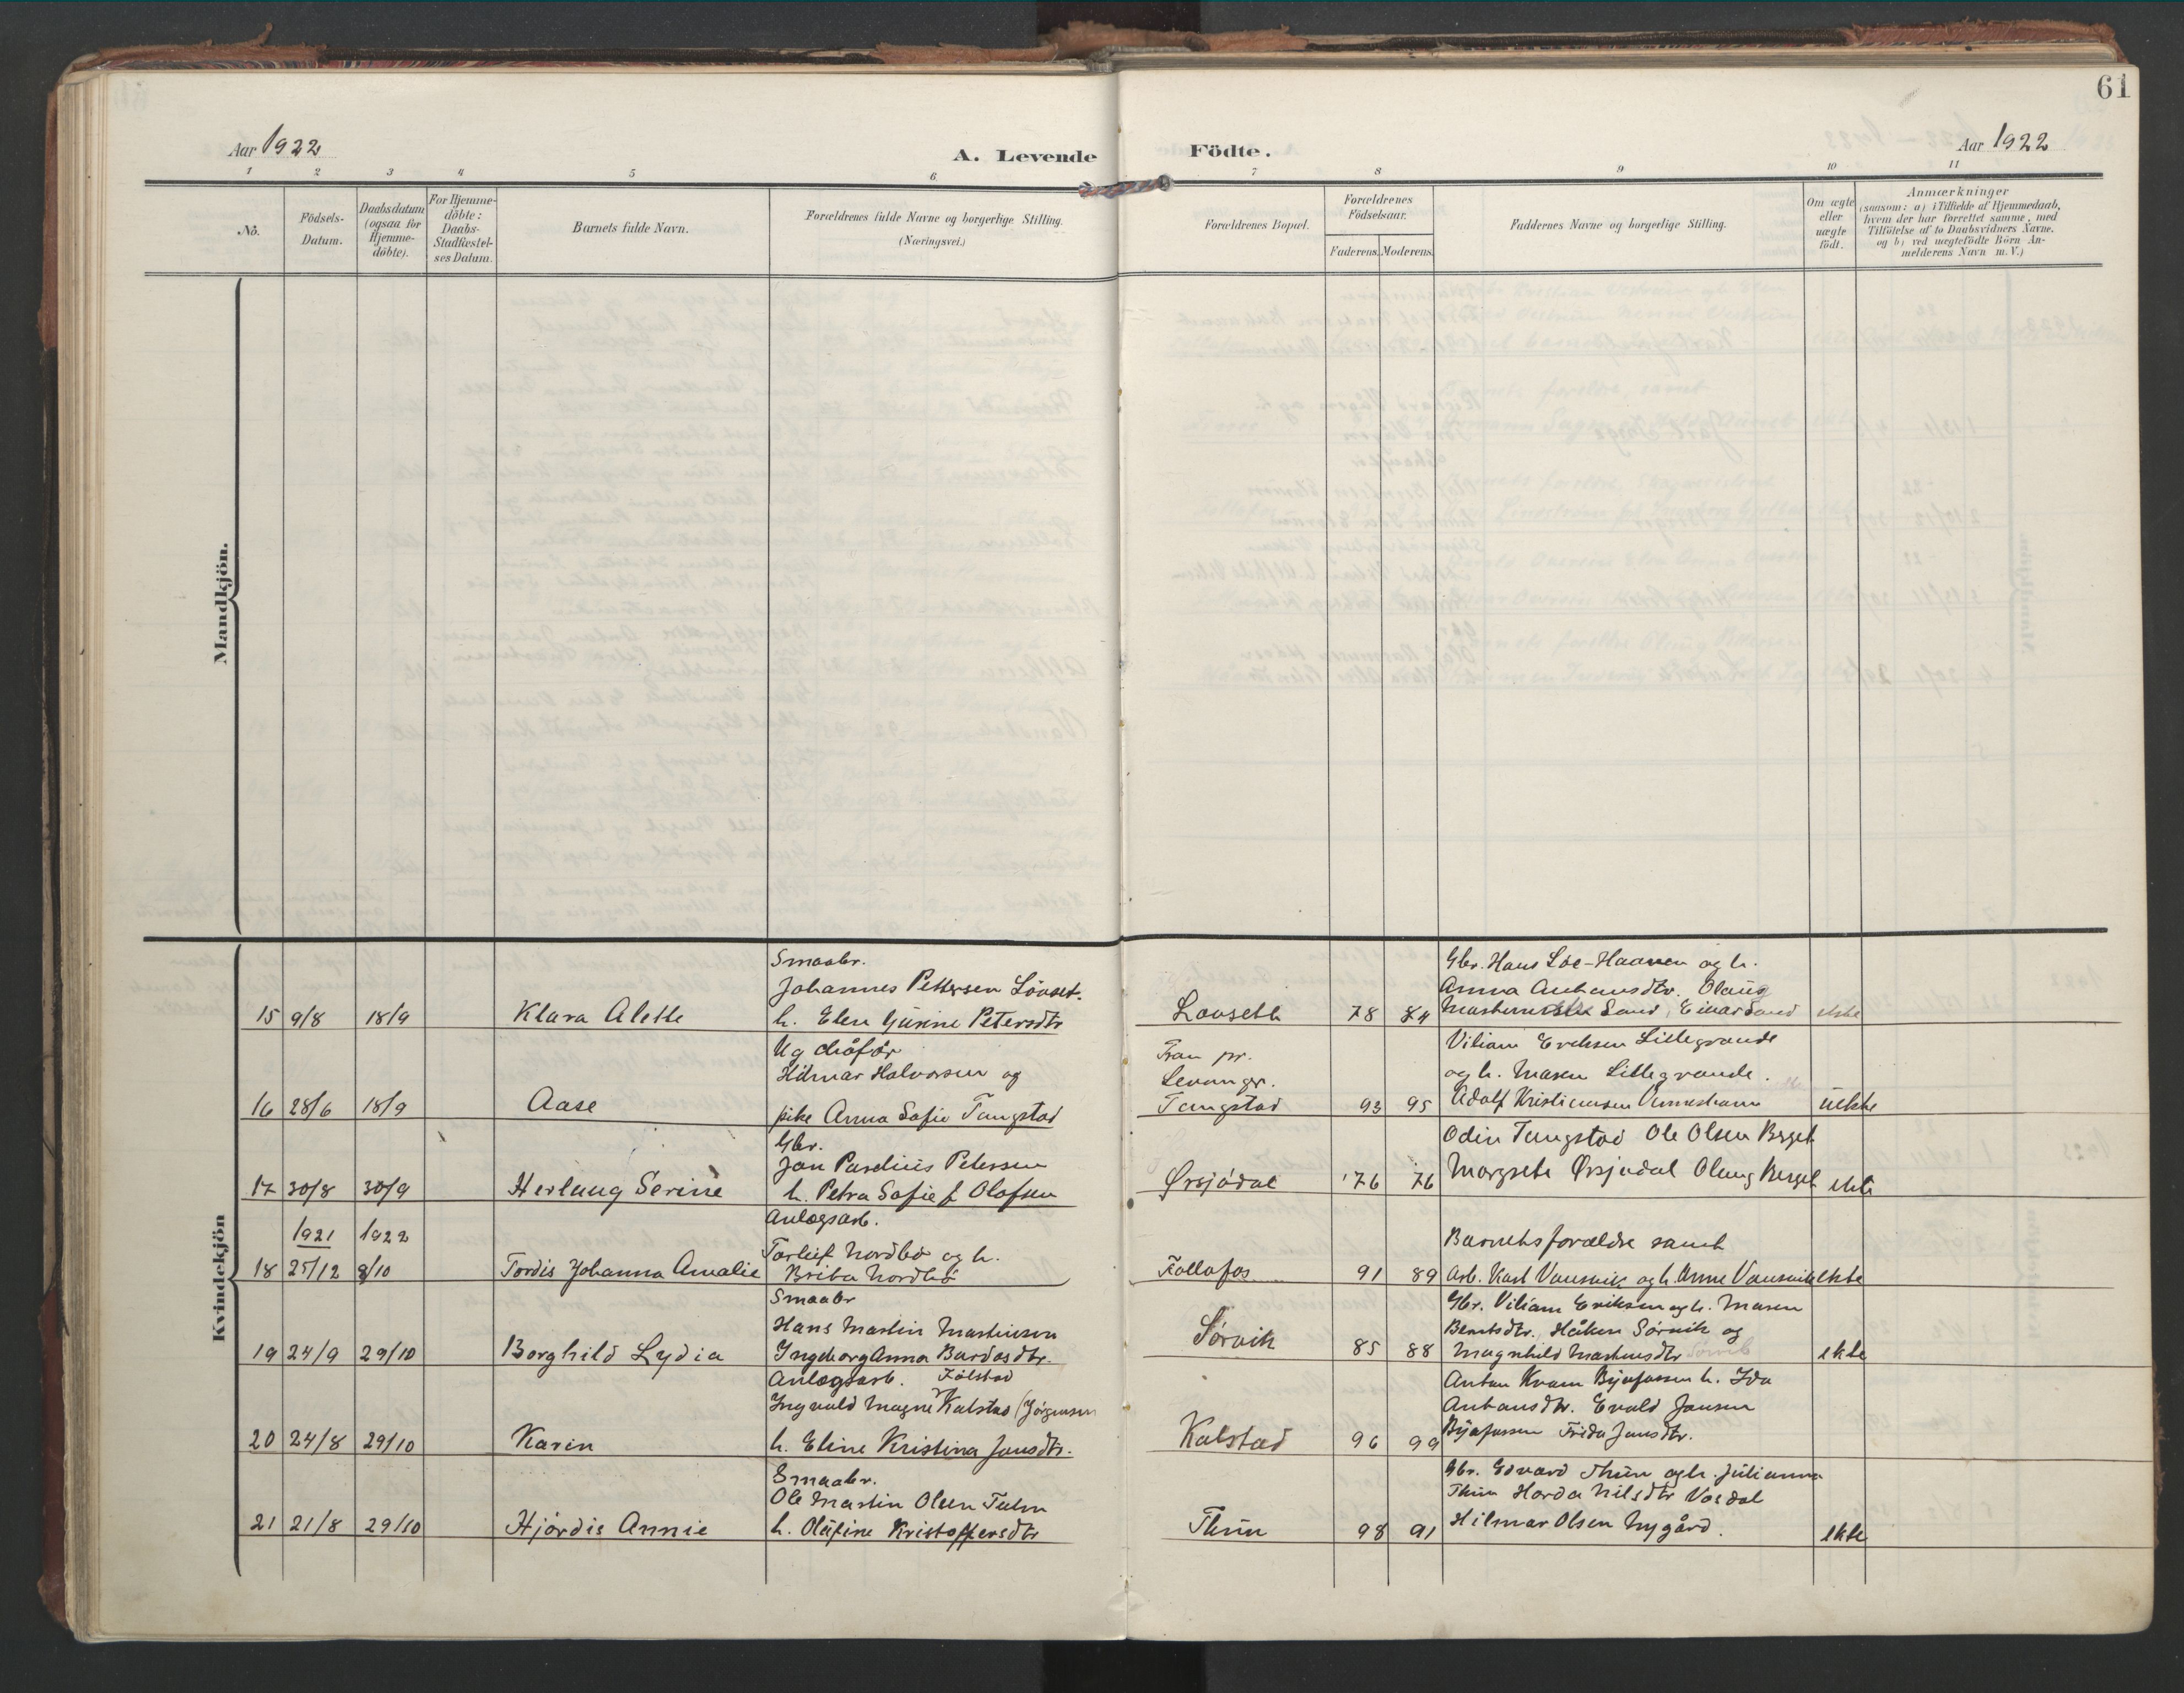 61
Aar 1922
A. Levende
Födte.
Aar 1922
1 2 3 4 5 6 7 8 9 10 11
Nö.
Födsels-
Datum.
Daabsdatum
(ogsaa for
Hjemme-
döbte).
For Hjemme-
döbte:
Daabs-
Stadfæstel-
ses Datum.
Barnets fulde Navn.
Forældrenes fulde Navne og borgerlige Stilling.
(Næringsvei.)
Forældrenes Bopæl.
Forældrenes
Födselsaar.
Faderens. Moderens.
Faddernes Navne og borgerlige Stilling.
Om ægte
eller
uægte
födt.
Anmærkninger
(saasom: a) i Tilfælde af Hjemmedaab,
hvem der har forrettet samme, med
Tilföielse af to Daabsvidners Navne.
og b) ved uægtefödte Börn An-
melderens Navn m. V.)
Mandkjön.
Kvindekjön
15 9/8 18/9 Klara Alette
Smaabr.
Johannes Pettersen Lövset.
h. Elen Gurine Petersdtr
Lovseth 78 84
Gbr. Hans Loe-Haaven og h.
Anna Anthonsdtr. Olaus
Sand, Einar Sand ekte
16 28/6 18/9 Aase
Ug chåfør
Hilmar Halvorsen og
pike Anna Sofie Tangstad
Fran pr.
Levanger.
Tangstad 93 95
Viliam Eriksen Lillegrande
og h. Masen Lillegrande.
Adolf Kristiansen uekte
17 30/8 30/9 Herlaug Serine
Gbr.
Jon Parelius Petersen
h. Petra Sofie f. Olafsen
Ørsjødal 76 76
Odin Tangstad Ole Olsen Berget
Margrete Ørsjødal Olaug Berget ekte
18 1921 25/12 1922 8/10 Tordis Johanna Amalie
Anlægsarb.
Torleif Nordbø og h.
Brita Nordbø
Follafos 91 89
Barnets forældre samt
Arb. Karl Vansvik og h. Anne Vansvik ekte
19 24/9 29/10 Borghild Lydia
Smaabr
Hans Martin Martinsen
Ingeborg Anna Bardosdtr.
Sørvik 85 88
Gbr. Viliam Eriksen og h. Masen
Berntsdtr. Håkon Sörvik og
Magnhild Martinsdtr Sørvik ekte
20 24/8 29/10 Karin
Anlægsarb. Kålstad
Ingvald Magne Kalstad (Jörgensen
h. Eline Kristina Jonsdtr.
Kalstad 96 99
Anton Kvam Byafossen h. Ida
Antonsdtr. Evald Jonsen
Byafossen Frida Jonsdtr.
21 21/8 29/10 Hjördis Annie
Smaabr.
Ole Martin Olsen Tuhn
h. Olufine Kristoffersdtr
Thun 98 91
Gbr. Edvard Thun og h. Julianna
Thun Horda Nilsdtr Vosdal
Hilmar Olsen Nygård. ekte